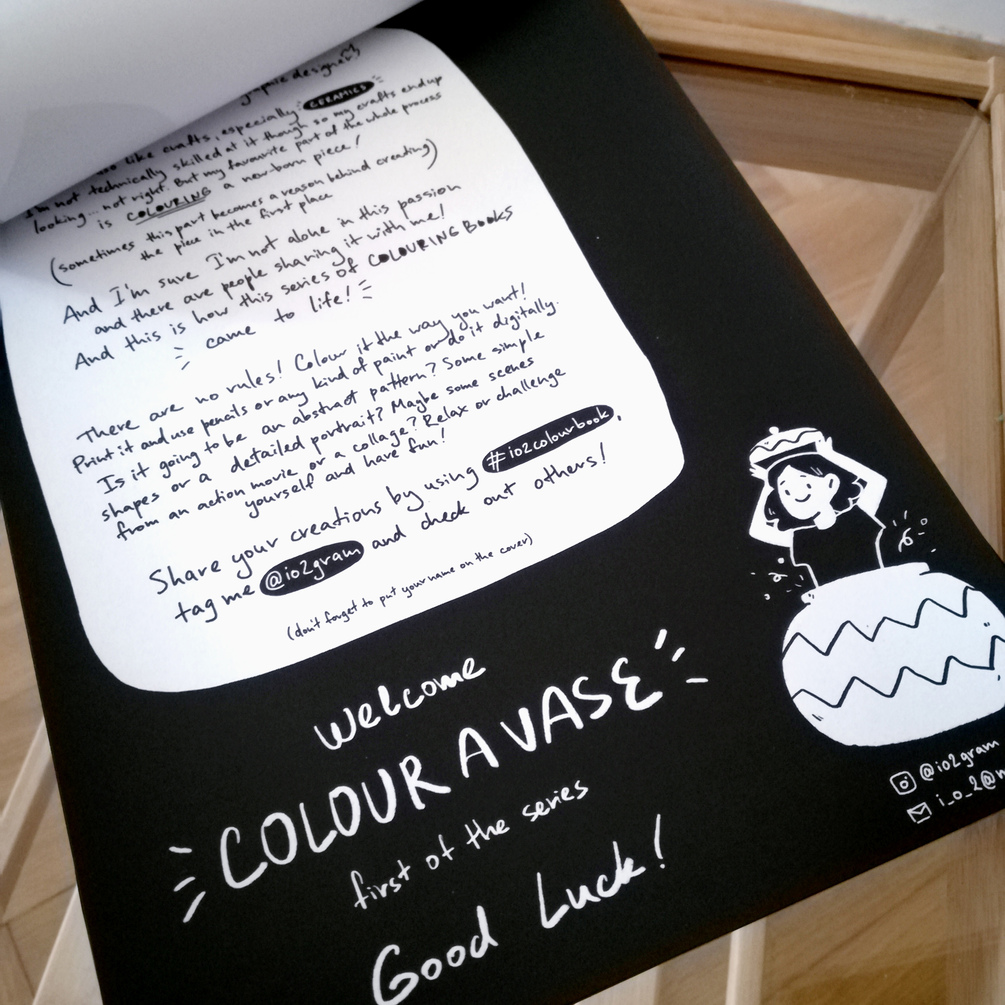 graphic designer)
like crafts, especially CERAMICS
I'm not technically skilled at it though so my crafts end up
looking... not right. But my favourite part of the whole process
is COLOURING a new-born piece!
(sometimes this part becomes a reason behind creating)
the piece in the first place
And I'm sure I'm not alone in this passion
and there are people sharing it with me!
And this is how this series of COLOURING BOOKS
came to life!
There are no rules! Colour it the way you want!
Print it and use pencils or any kind of paint or do it digitally.
Is it going to be an abstract pattern? Some simple
shapes or a detailed portrait? Maybe some scenes
from an action movie or a collage? Relax or challenge
yourself and have fun!
Share your creations by using #io2colourbook,
tag me @io2gram and check out others!
(don't forget to put your name on the cover)
Welcome
COLOUR A VASE
first of the series
Good Luck!
@io2gram
i_o_2@